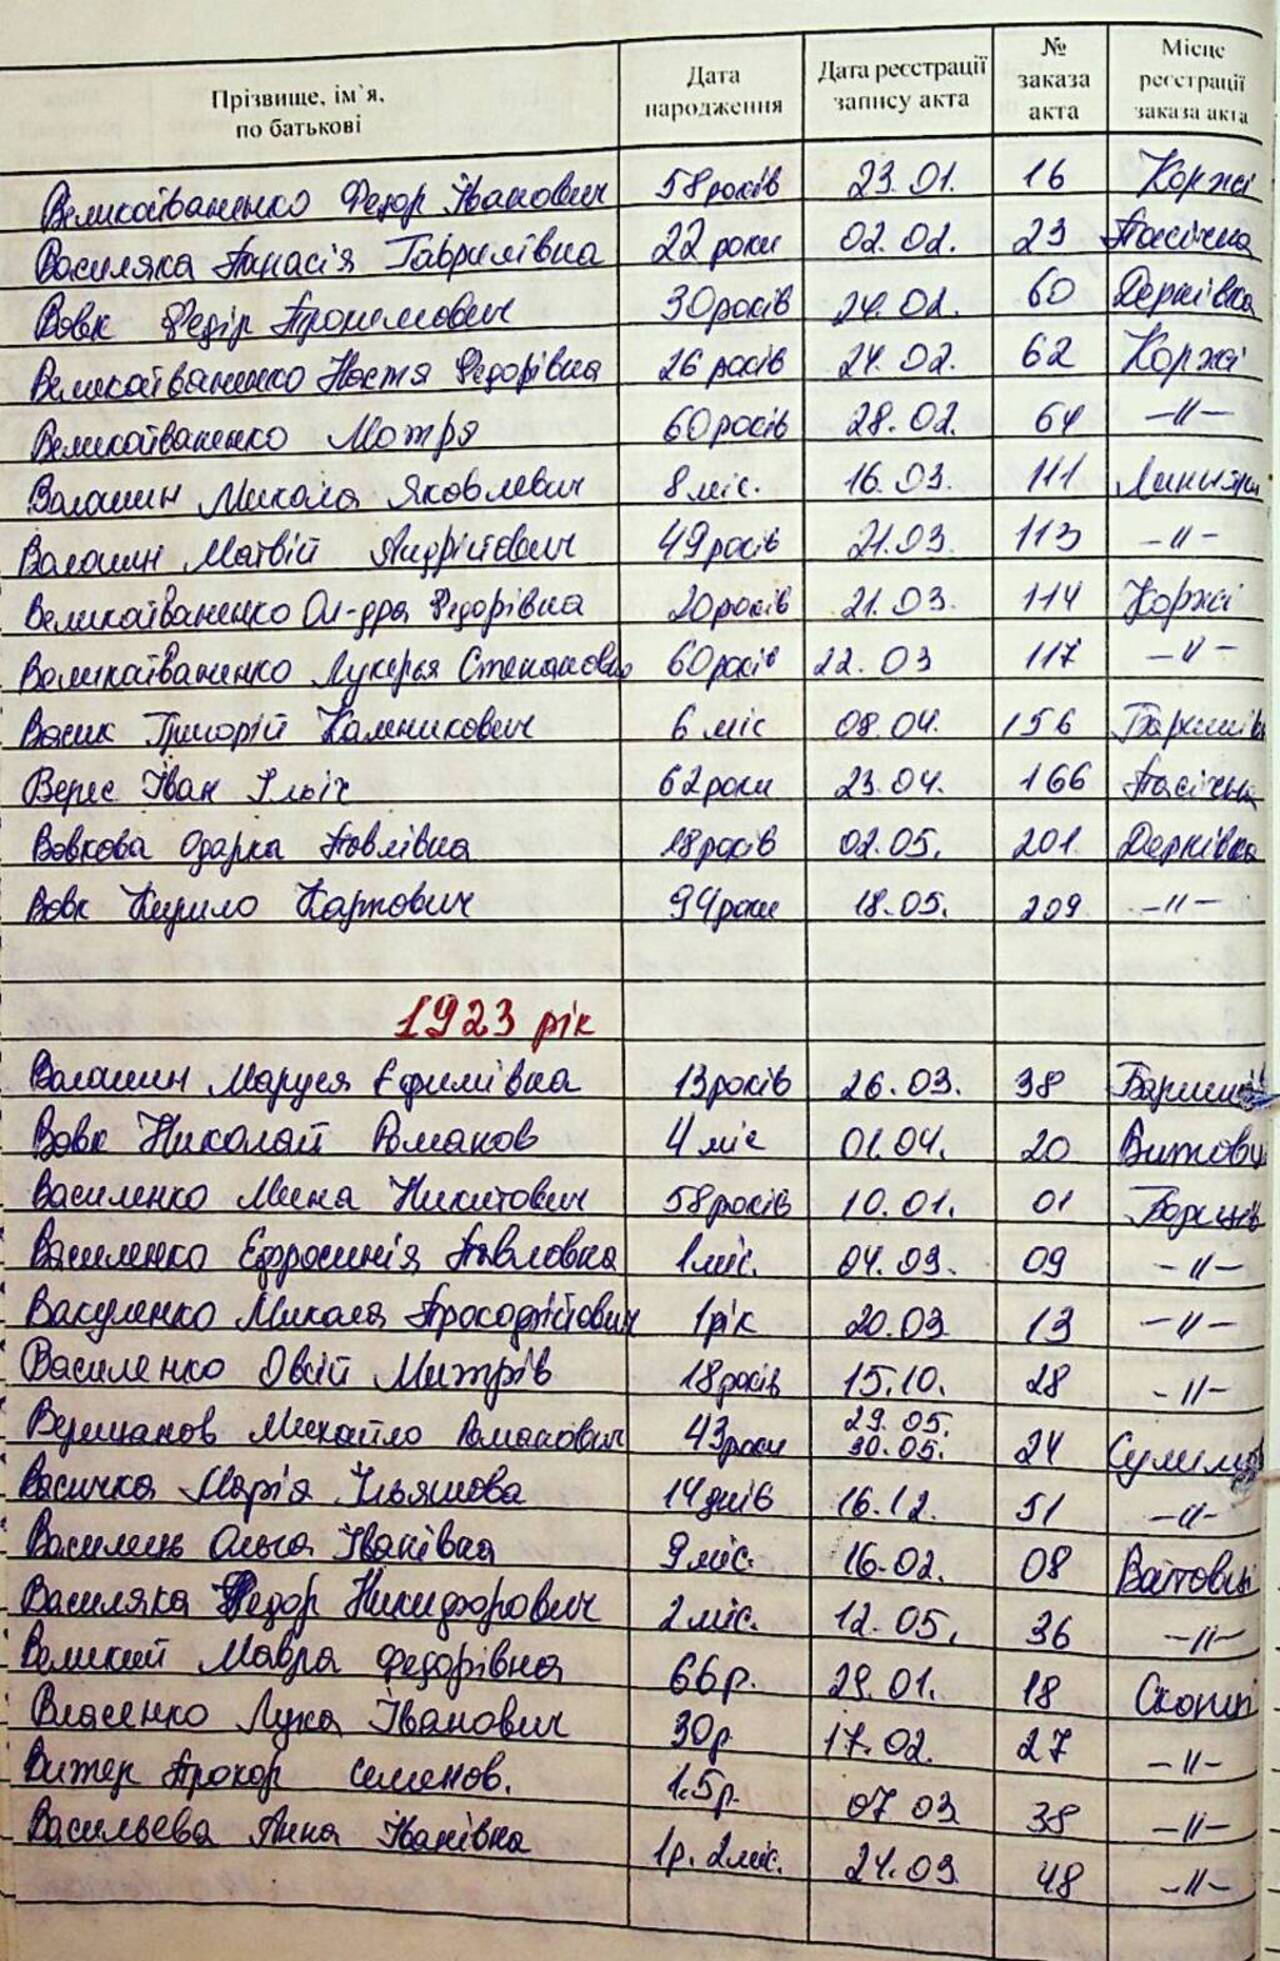 Прізвище, ім`я, по батькові Дата народження Дата реєстрації запису акта № заказа акта Місце реєстрації заказа акта
Великоіваненко Федор Іванович 58 років 23.01. 16 Коржі
Василяка Панасія Гаврилівна 22 роки 02.02. 23 Пасічна
Вовк Федір Трохимович 30 років 24.02. 60 Дернівка
Великоіваненко Настя Федорівна 26 років 24.02. 62 Коржі
Великоіваненко Мотря 60 років 28.02. 64 -"-
Волошин Микола Яковлевич 8 міс. 16.03. 111
Волошин Матвій Андрійович 49 років 21.03. 113 -"-
Великоіваненко Ол-дра Федорівна 20 років 21.03. 114 Коржі
Великоіваненко Лукерья Степановна 60 років 22.03 117 -"-
Васик Григорій 6 міс 08.04. 156
Верес Іван Ільіч 62 роки 23.04. 166 Пасічна
Вовкова Одарка Павлівна 18 років 02.05. 201. Дернівка
Вовк Кирило Карпович 94 роки 18.05. 209 -"-
1923 рік
Волошин Маруся Єфимівна 13 років 26.03. 38
Вовк Николай Романов 4 міс 01.04. 20
Василенко Мина Никитович 58 років 10.01. 01
Василенко Ефросинія Павловна 1 міс. 04.03. 09 -"-
Вакуленко Микола 1 рік 20.03 13 -"-
Василенко Овсій Митрів 18 років 15.10. 28 -"-
Михайло Романович 43 роки 29.05. 30.05. 24
Васичка Марія Ільяшова 14 днів 16.12. 51 -"-
Василець Ольга Іванівна 9 міс. 16.02. 08
Василяка Федор Никифорович 2 міс. 12.05. 36 -"-
Великий Мавра Федорівна 66 р. 29.01. 18
Власенко Лука Іванович 30 р 17.02. 27 -"-
Витер Прохор Семенов. 1.5 р. 07 03 38 -"-
Васильева Анна Іванівна 1 р. 2 міс. 24.03 48 -"-